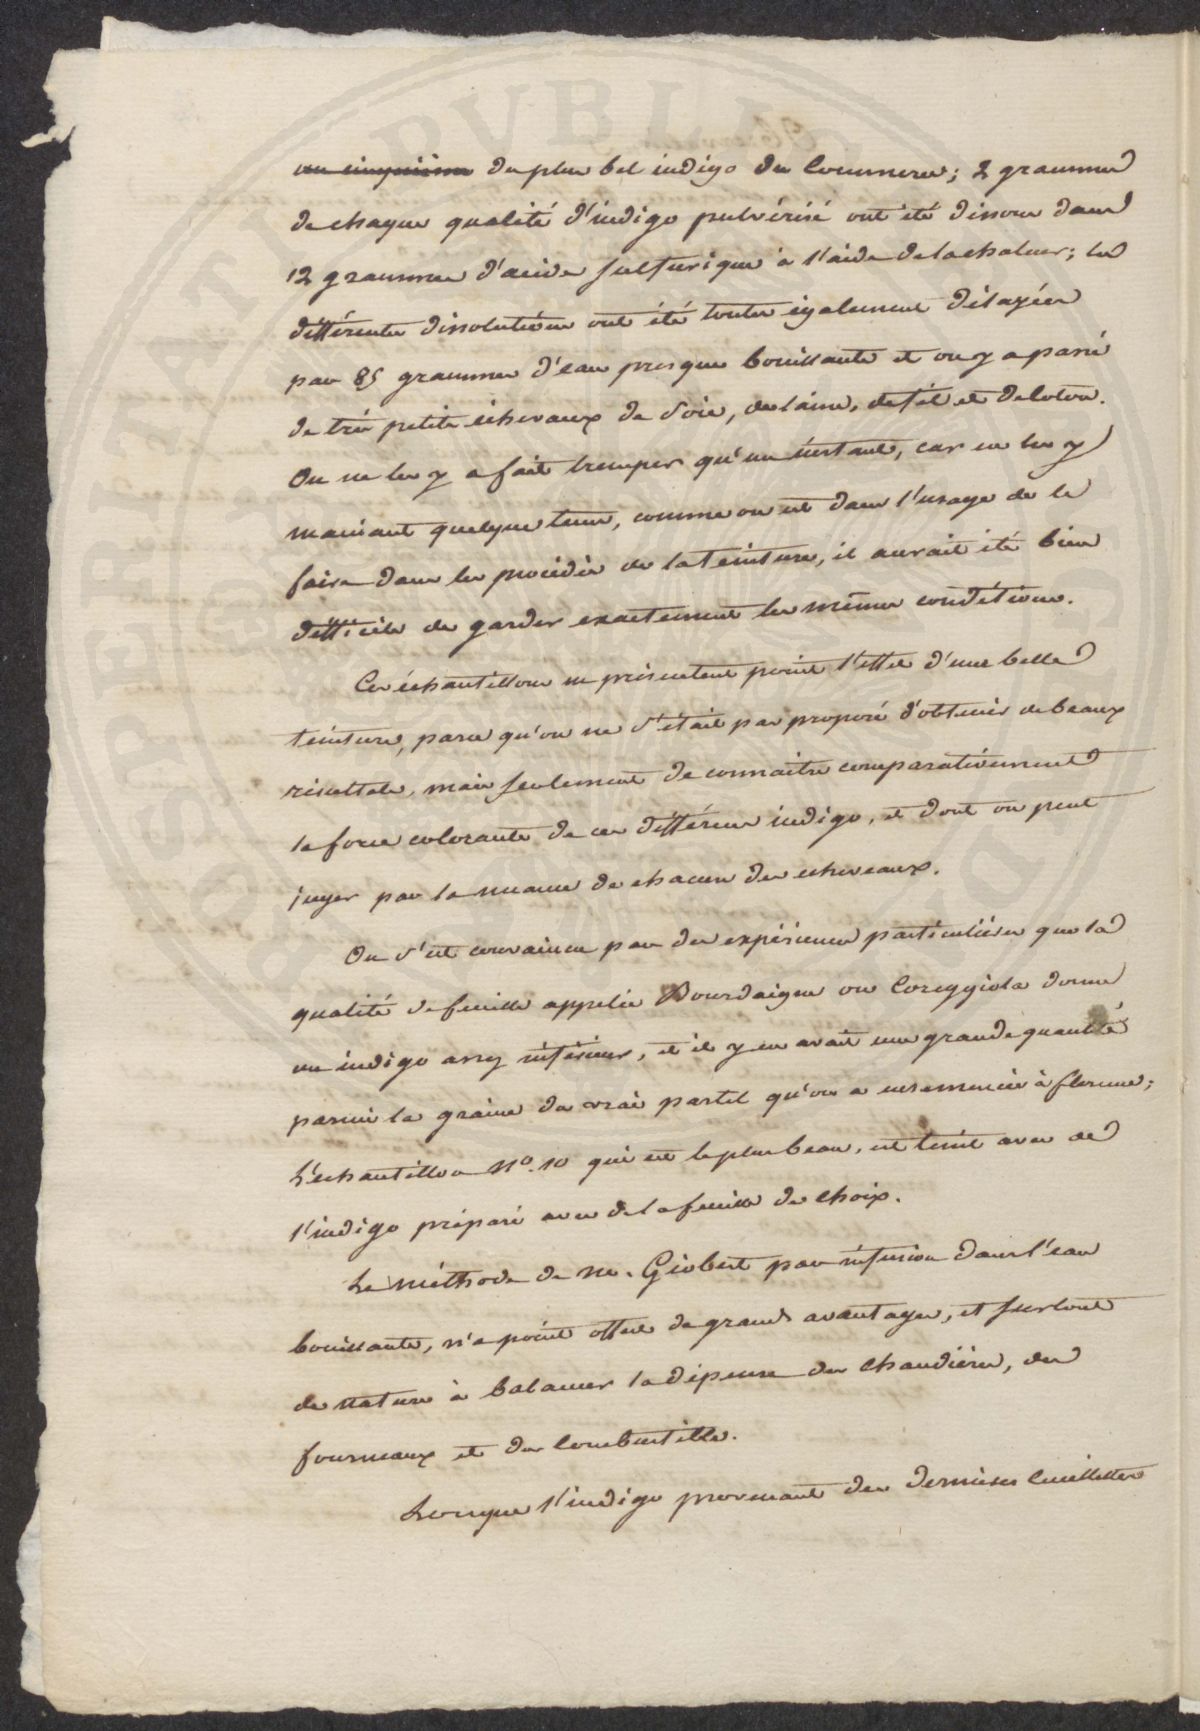 un cinquième du plus bel indigo du Commerce; 2 grammes
de chaque qualité d'indigo pulvérisé ont été dissous dans
12 grammes d'acide sulfurique à l'aide de la chaleur; les
différentes dissolutions ont été toutes également délayées
par 85 grammes d'eau presque bouillante et on y a passé
de très petits écheveaux de Soie, de laine, de fil et de Coton.
On ne les y a fait tremper qu'un instant, car en les y
maniant quelque tems, comme on est dans l'usage de le
faire dans les procédés de la Teinture, il aurait été bien
difficile de garder exactement les mêmes conditions.
Ces échantillons ne présentent point l'effet d'une belle
teinture, parce qu'on ne s'était pas proposé d'obtenir de beaux
résultats, mais seulement de connaitre comparativement
la force colorante de ces différens indigo, et dont on peut
juger par la nuance de chacun des echeveaux.
On s'est convaincu par des expériences particulières que la
qualité de feuille appelée Bourdaigne ou Coreggiola donne
un indigo assez inférieur, et il y en avait une grande quantité
parmi la graine du vrai pastel qu'on a ensemencée à florence;
L'echantillon N.o 10 qui est le plus beau, est teint avec de
l'indigo préparé avec de la feuille de Choix.
La méthode de M. Giobert par infusion dans l'eau
bouillante, n'a point offert de grands avantages, et surtout
de nature à balancer la dépense des Chaudières, des
fourneaux et du Combustible.
Lorsque l'indigo provenant des dernières Cueillettes
PVBLIC